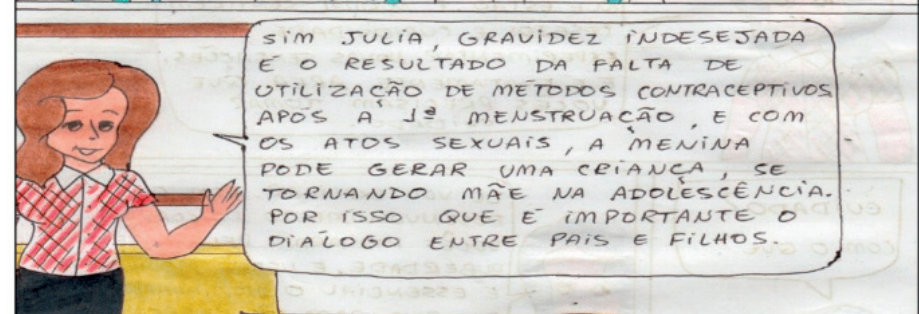 SIM JULIA, GRAVIDEZ INDESEJADA
É O RESULTADO DA FALTA DE
UTILIZAÇÃO DE MÉTODOS CONTRACEPTIVOS
APÓS A 1ª MENSTRUAÇÃO, E COM
OS ATOS SEXUAIS, A MENINA
PODE GERAR UMA CRIANÇA, SE
TORNANDO MÃE NA ADOLESCÊNCIA.
POR ISSO QUE É IMPORTANTE O
DIÁLOGO ENTRE PAIS E FILHOS.